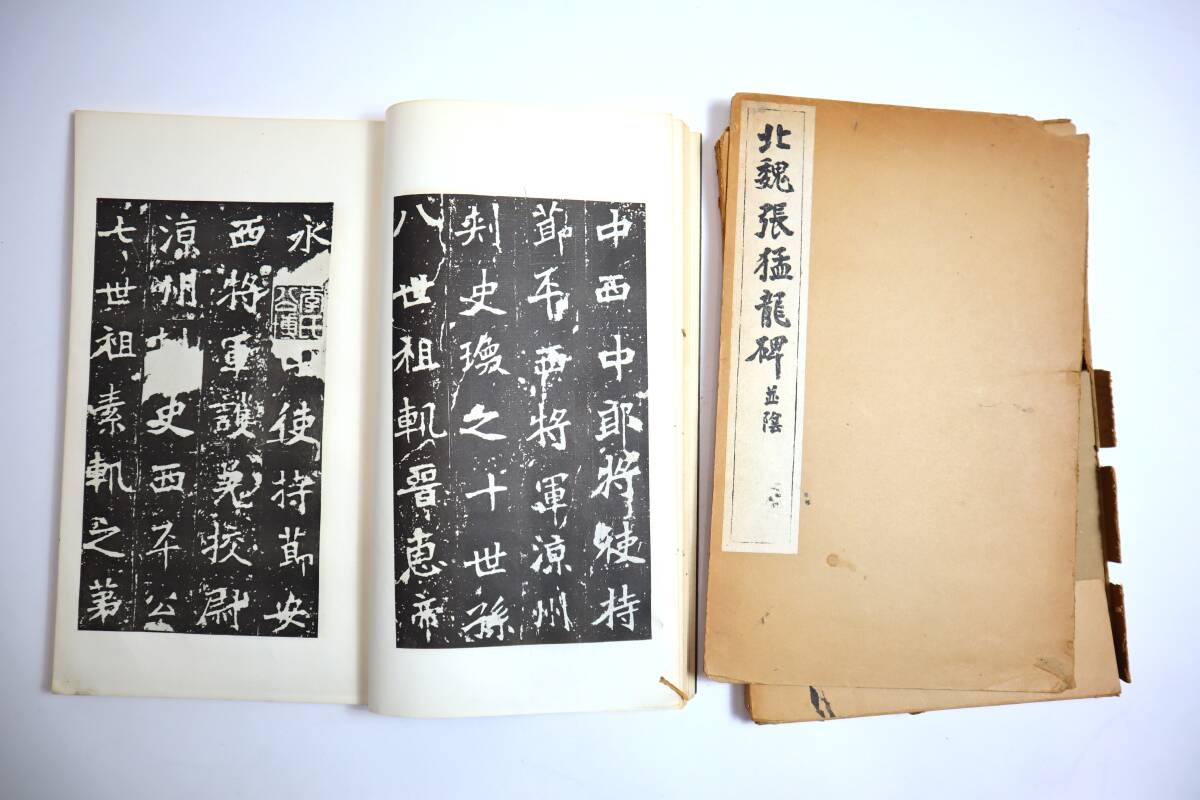 北魏張猛龍碑 並陰
中西中郎將使持
莭平西將軍涼州
刾史瓊之十世孫
八世祖軌晉惠帝
永中使持莭安
西將軍護羌校尉
涼州史西平公
七世祖素軌之第
李氏
公博